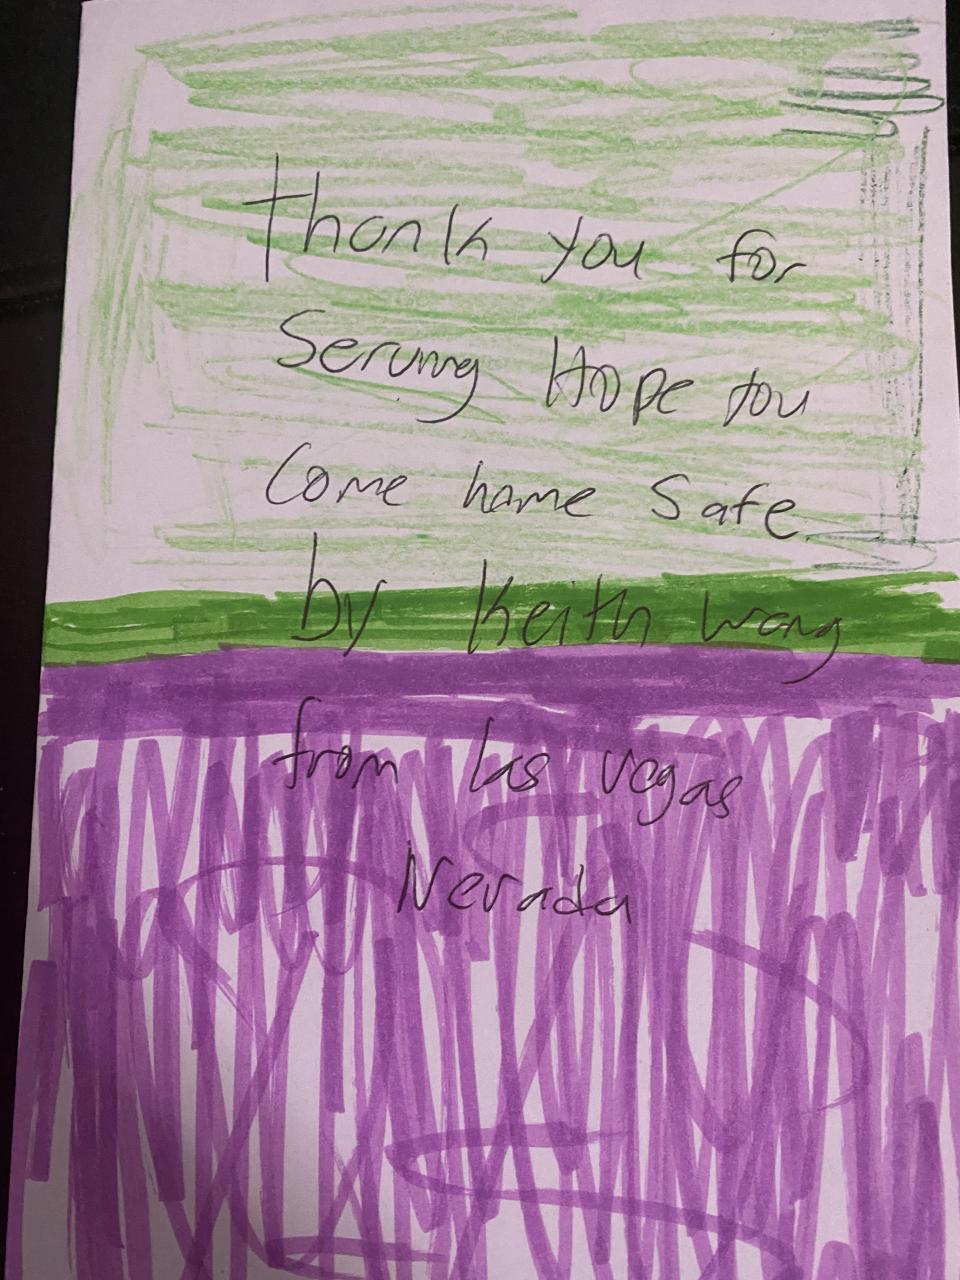 Thank you for
Serving Hope you
Come home Safe
by Keith Wang
from las vegas
Nevada